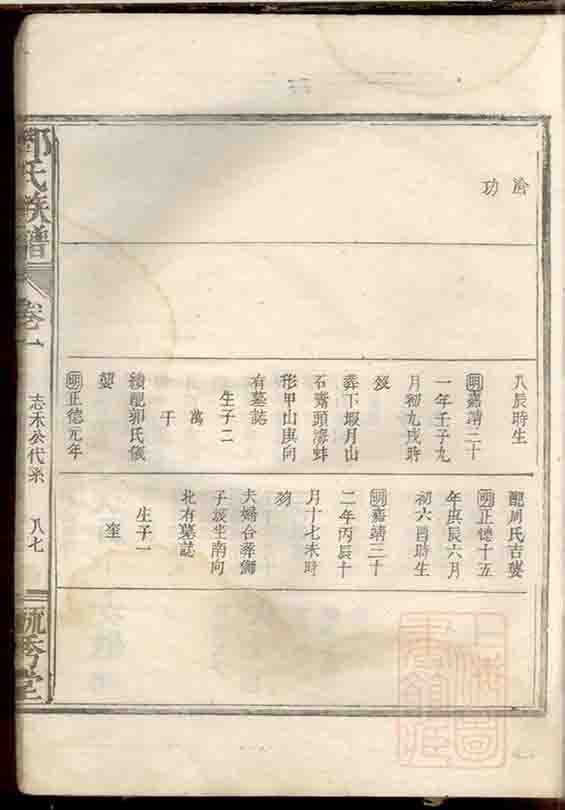 功
八辰時生
明嘉靖三十
一年壬子九
月初九戌時
歿
葬下堰月山
石齊頭海蚌
形甲山庚向
有墓誌
生子二
萬
于
續配郭氏儀
娶
明正德元年
配周氏吉婆
明正德十五
年庚辰六月
初六酉時生
明嘉靖三十
二年丙辰十
月十七未時
歿
夫婦合葬獅
子坡坐南向
北有墓誌
生子一
奎
氏族譜
卷一
志禾公代系
八七
毓秀堂